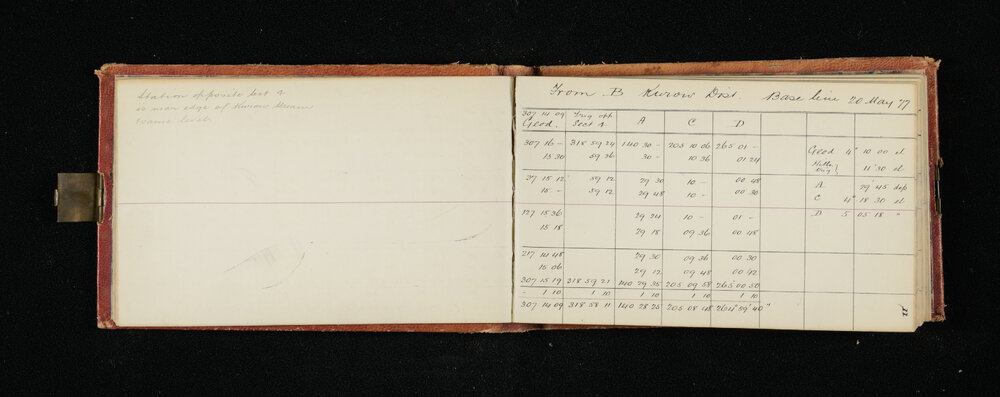 Station opposite Sect 4
is near edge of Kurow Stream
same level
From B Kurow Dist. Base line 20 May 77
307 14 09 Trig opp
Geod. Sect 4 A C D
307 16 - 318 59 24 140 30 - 205 10 06 265 01 - Geod 4° 10 00 el
15 30 59 26 30 - 10 36 01 24 11 30 el
37 15 12 59 12 29 30 10 - 00 48 A 29 45 dep
15 - 59 12 29 48 10 - 00 30 C 4° 18 30 el
127 15 36 29 24 10 - 01 - D 5 05 18 "
15 18 29 18 09 36 00 48
217 14 48 29 30 09 36 00 30
15 06 29 12 09 48 00 42
307 15 19 318 59 21 140 29 35 205 09 58 265 00 50
- 1 10 1 10 1 10 1 10 1 10
307 14 09 318 58 11 140 28 25 205 08 48 264° 59' 40"